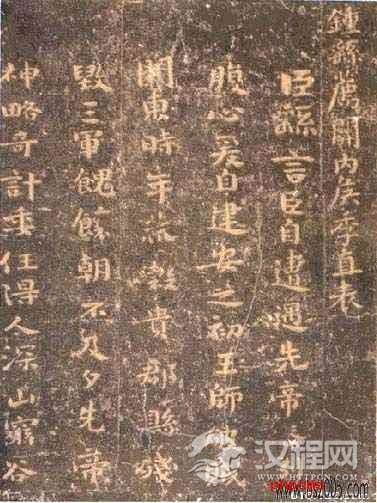 鍾繇薦關内侯季直表
臣繇言臣自遭遇先帝
腹心爰自建安之初王師破賊
關東時年荒穀貴郡縣殘
毀三軍餽饟朝不及夕先帝
神略奇計委任得人深山窮谷
汉程网
HTTPCN.COM